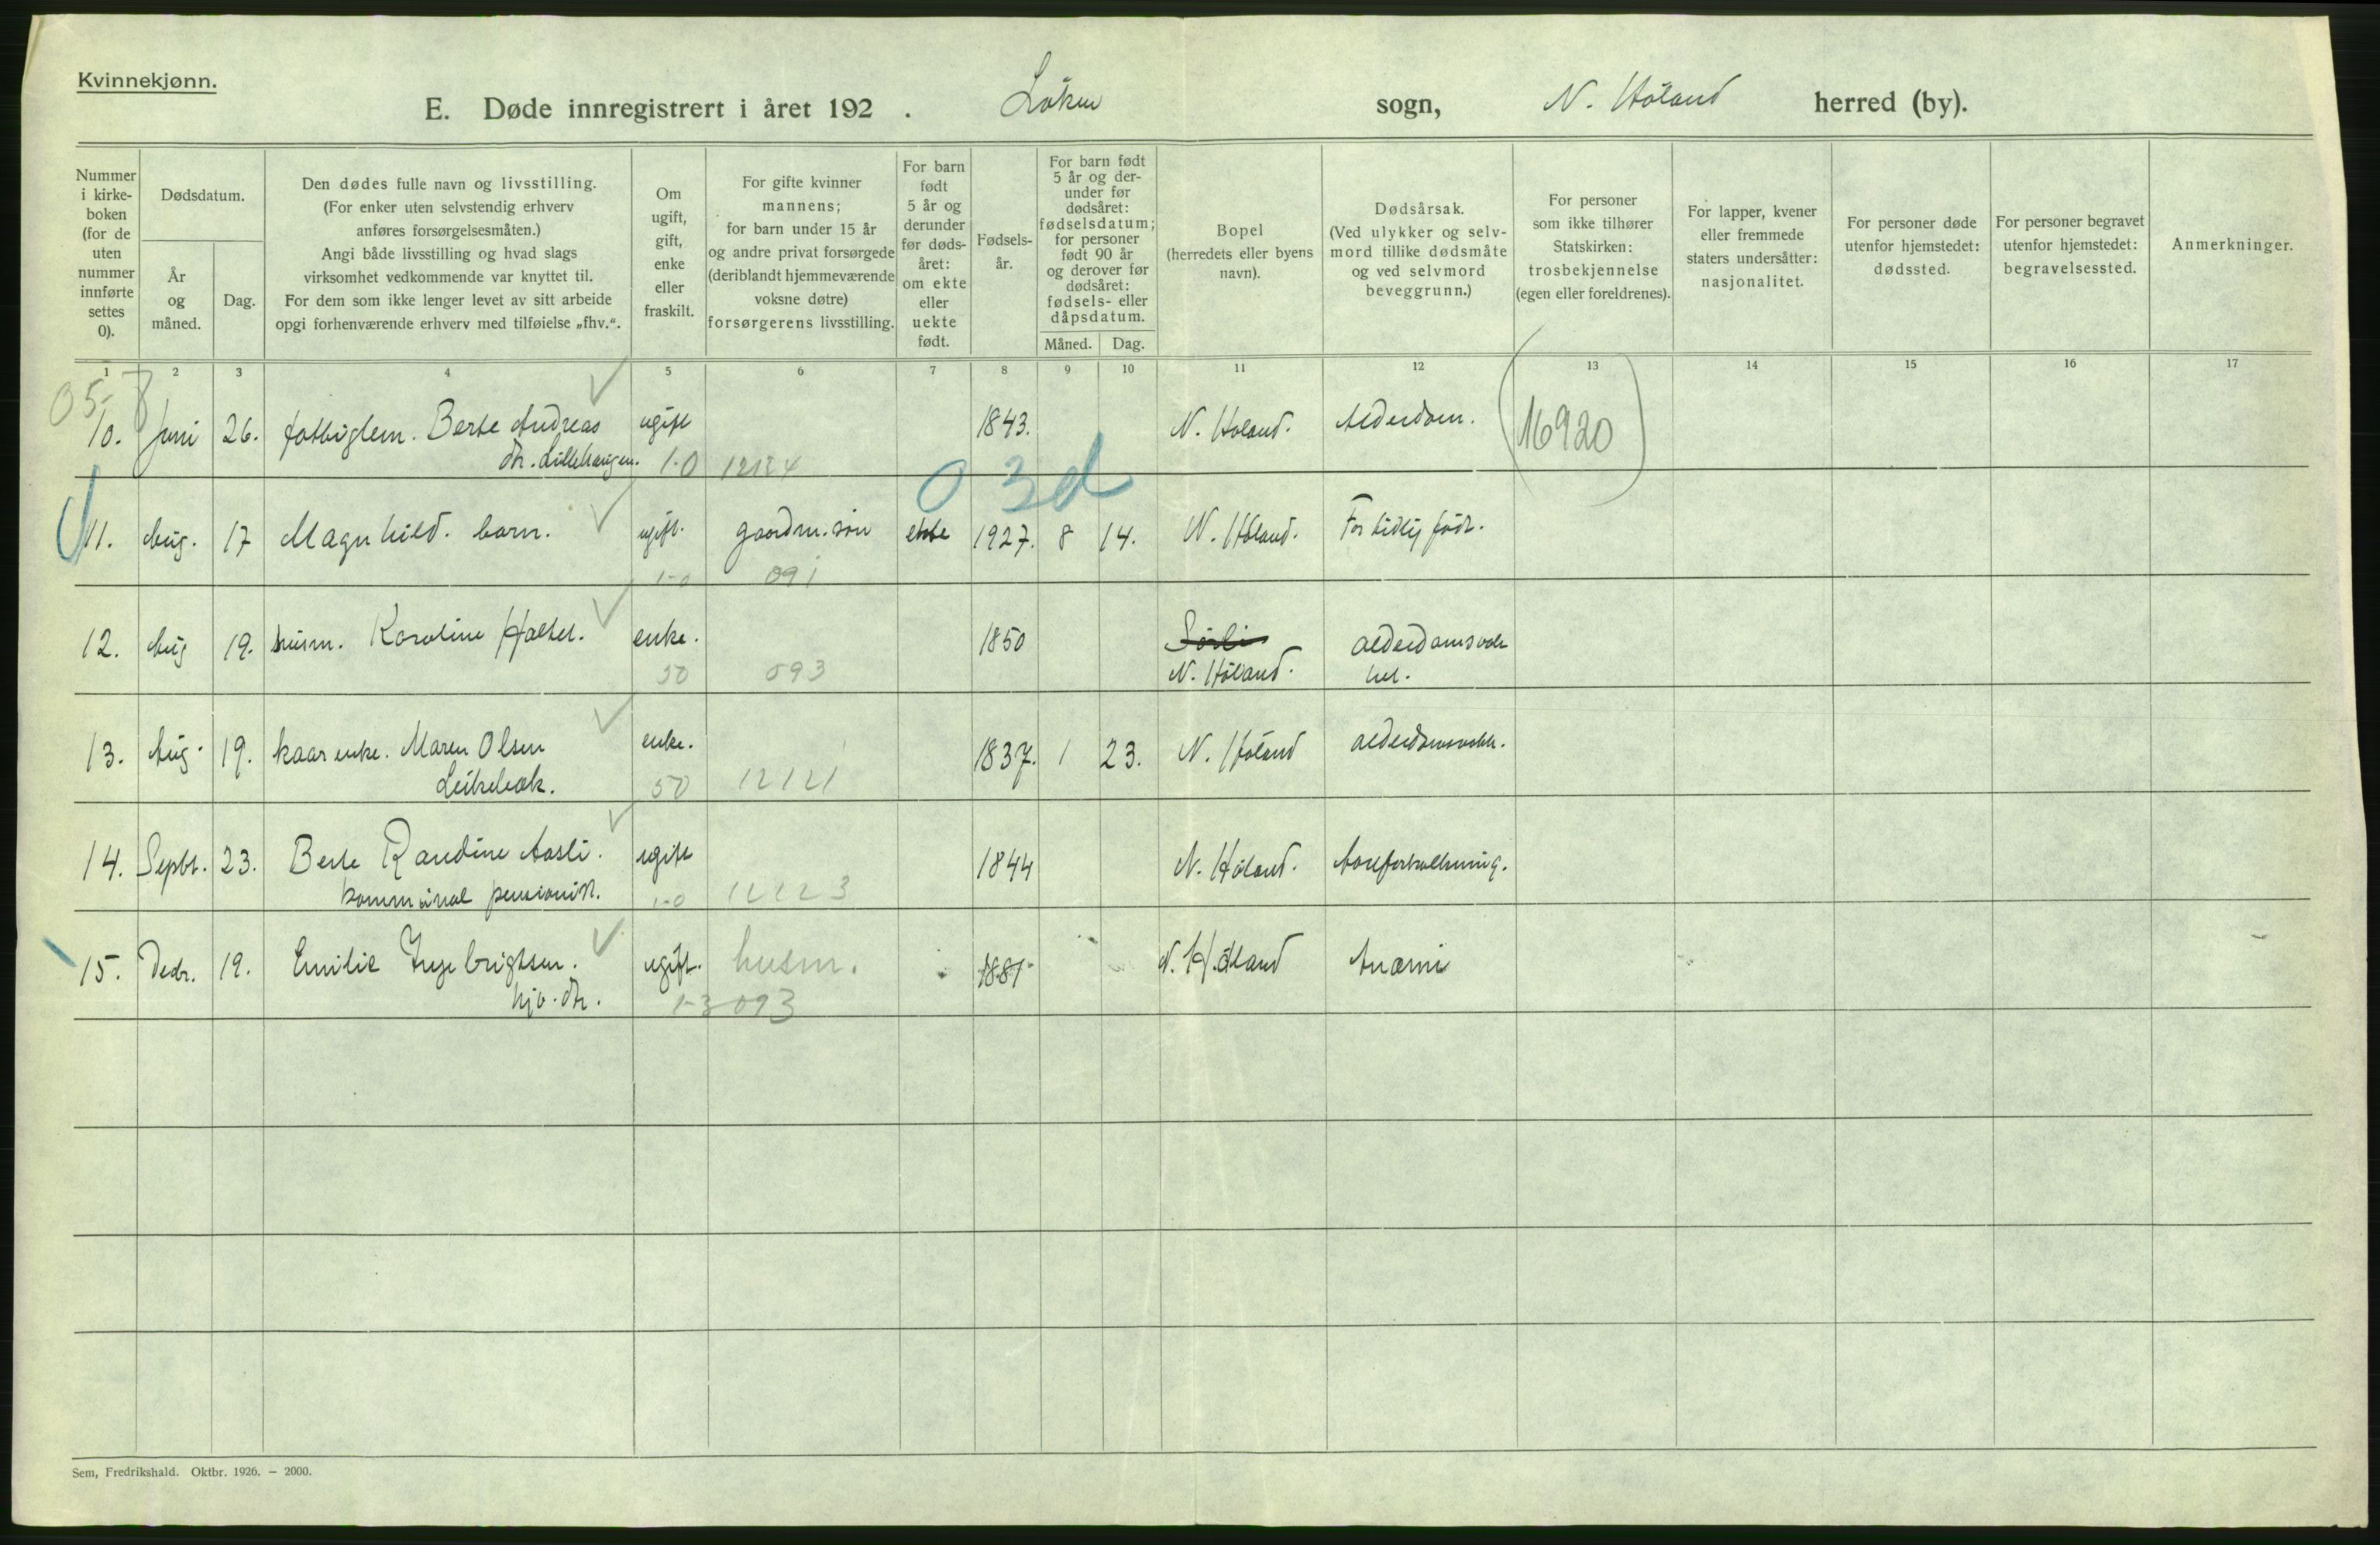 Kvinnekjønn.
E. Døde innregistrert i året 192 . Løken sogn, N. Høland herred (by).
Nummer i kirkeboken (for de uten nummer innførte settes 0).
Dødsdatum.
År og måned.
Dag.
Den dødes fulle navn og livsstilling.
(For enker uten selvstendig erhverv
anføres forsørgelsesmåten.)
Angi både livsstilling og hvad slags
virksomhet vedkommende var knyttet til.
For dem som ikke lenger levet av sitt arbeide
opgi forhenværende erhverv med tilføielse „fhv.“.
Om ugift, gift, enke eller fraskilt.
For gifte kvinner
mannens;
for barn under 15 år
og andre privat forsørgede
(deriblandt hjemmeværende
voksne døtre)
forsørgerens livsstilling.
For barn født 5 år og derunder før dødsåret: om ekte eller uekte født.
Fødsels-
år.
For barn født
5 år og der-
under før
dødsåret:
fødselsdatum;
for personer
født 90 år
og derover før
dødsåret:
fødsels- eller
dåpsdatum.
Måned. Dag.
Bopel
(herredets eller byens
navn).
Dødsårsak.
(Ved ulykker og selv-
mord tillike dødsmåte
og ved selvmord
beveggrunn.)
For personer
som ikke tilhører
Statskirken:
trosbekjennelse
(egen eller foreldrenes).
For lapper, kvener
eller fremmede
staters undersåtter:
nasjonalitet.
For personer døde
utenfor hjemstedet:
dødssted.
For personer begravet
utenfor hjemstedet:
begravelsessted.
Anmerkninger.
1 2 3 4 5 6 7 8 9 10 11 12 13 14 15 16 17
05
10. Juni 26. fattiglem. Berte Andreas ugift 1843. N. Høland. Alderdom. (16920)
dtr. Lillehaugen. 1-0 12124
0 3d
11. Aug. 17 Magnhild. barn. ugift. gaardm. søn ekte 1927. 8 14. N. Høland. For tidlig født.
1-0 091
12. Aug 19. husm. Karoline Haltet. enke. 1850 Sørli alderdomsvak
50 093 N. Høland. het.
13. Aug. 19. kaarenke. Maren Olsen enke. 1837. 1 23. N. Høland alderdomsvakh.
50 12121
14. Septbr. 23. Berte Randine Aasli. ugift 1844 N. Høland. Aareforkalkning.
kommunal pensionist. 1-0 12123
15. Decbr. 19. Emilie Ingebrigtsen. ugift. husm. 1881 N. Høland Anæmi
hjv. dtr. 1-3 093
Sem, Fredrikshald. Oktbr. 1926. — 2000.